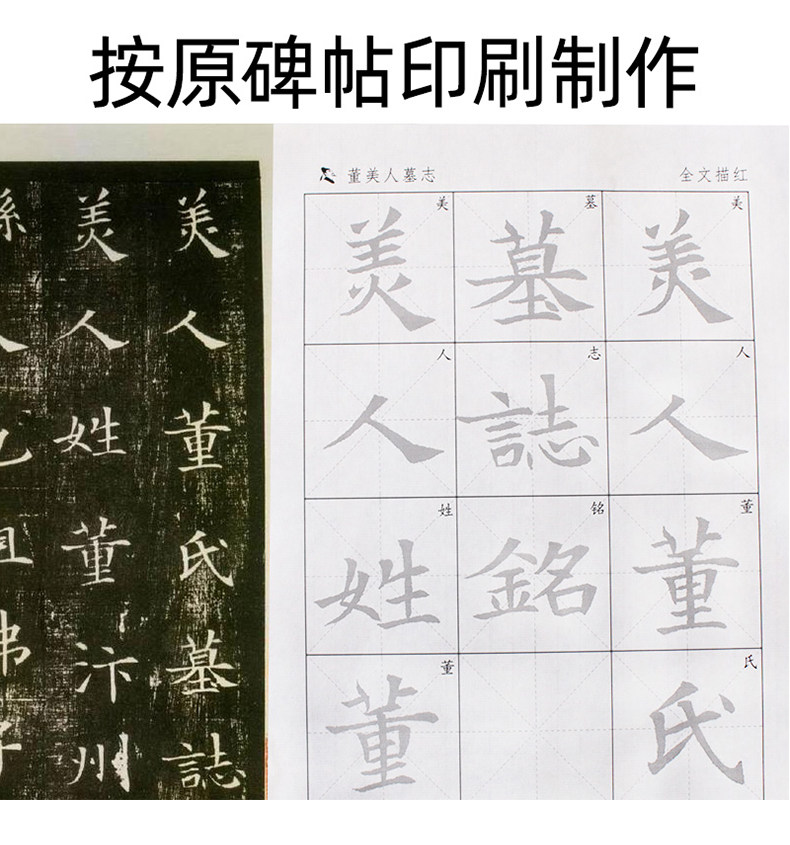 按原碑帖印刷制作
美人董氏墓誌
美人姓董汴州
董美人墓志
全文描红
美人董氏
美人董氏
墓志铭
墓誌銘
美人姓董
美人姓董